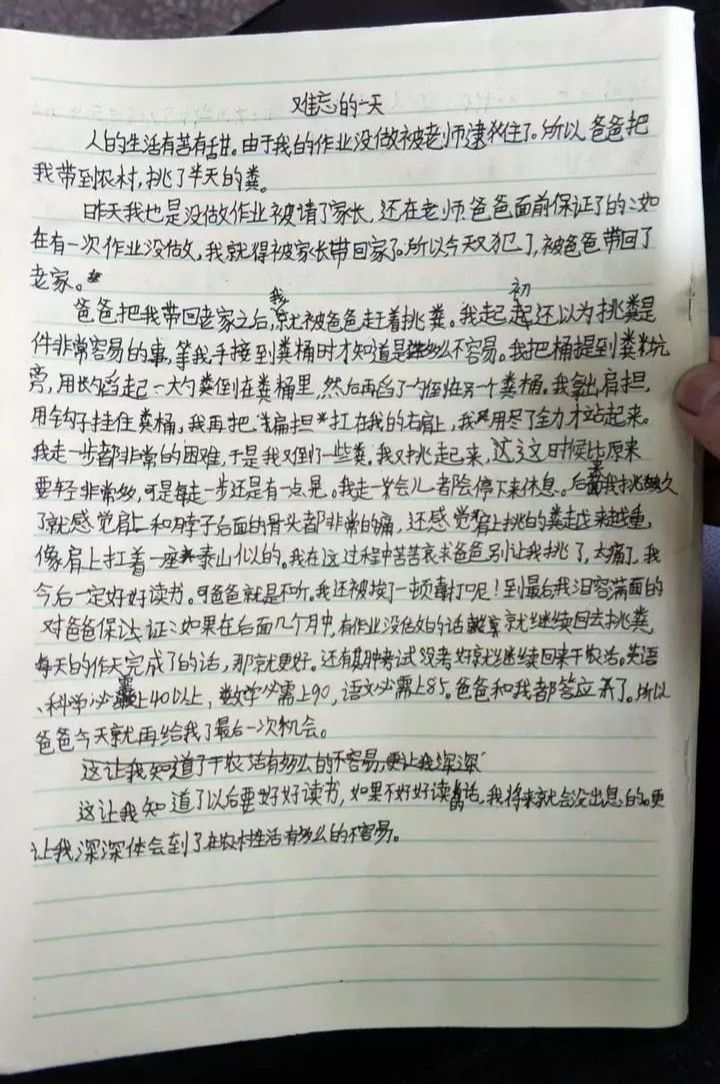 难忘的一天
人的生活有苦有甜。由于我的作业没做被老师逮住了。所以爸爸把
我带到农村，挑了半天的粪。
昨天我也是没做作业被请了家长，还在老师爸爸面前保证了的：如
在有一次作业没做，我就得被家长带回家了。所以今天又犯了，被爸爸带回了
老家。
爸爸把我带回老家之后，我就被爸爸赶着挑粪。我起初还以为挑粪是
件非常容易的事，等我手接到粪桶时才知道是多么不容易。我把桶提到粪坑
旁，用勺舀起一大勺粪倒在粪桶里，然后再舀了一勺倒在另一个粪桶。我拿出肩担，
用钩子挂住粪桶，我再把扁担扛在我的右肩上，我用尽了全力才站起来。
我走一步都非常的困难，于是我又倒了一些粪。我又挑走起来，这时候比原来
要轻非常多，可是每走一步还是有一点晃。我走一会儿都会停下来休息。后面我挑久
了就感觉肩上和脖子后面的骨头都非常的痛，还感觉肩上挑的粪越来越重，
像肩上扛着一座泰山似的。我在这过程中苦苦哀求爸爸别让我挑了，太痛了，我
今后一定好好读书。可爸爸就是不听。我还被挨了一顿毒打呢！到最后我泪容满面的
对爸爸保证：如果在后面几个月中，有作业没做的话就继续回去挑粪，
每天的作天完成了的话，那就更好。还有期中考试没考好就继续回来干农活。英语
、科学必需上40以上，数学必需上90，语文必需上85。爸爸和我都答应了。所以
爸爸今天就再给我了最后一次机会。
这让我知道了干农活有多么的不容易，更让我深深
这让我知道了以后要好好读书，如果不好好读的话，我将来就会没出息的。更
让我深深体会到了在农村生活有多么的不容易。